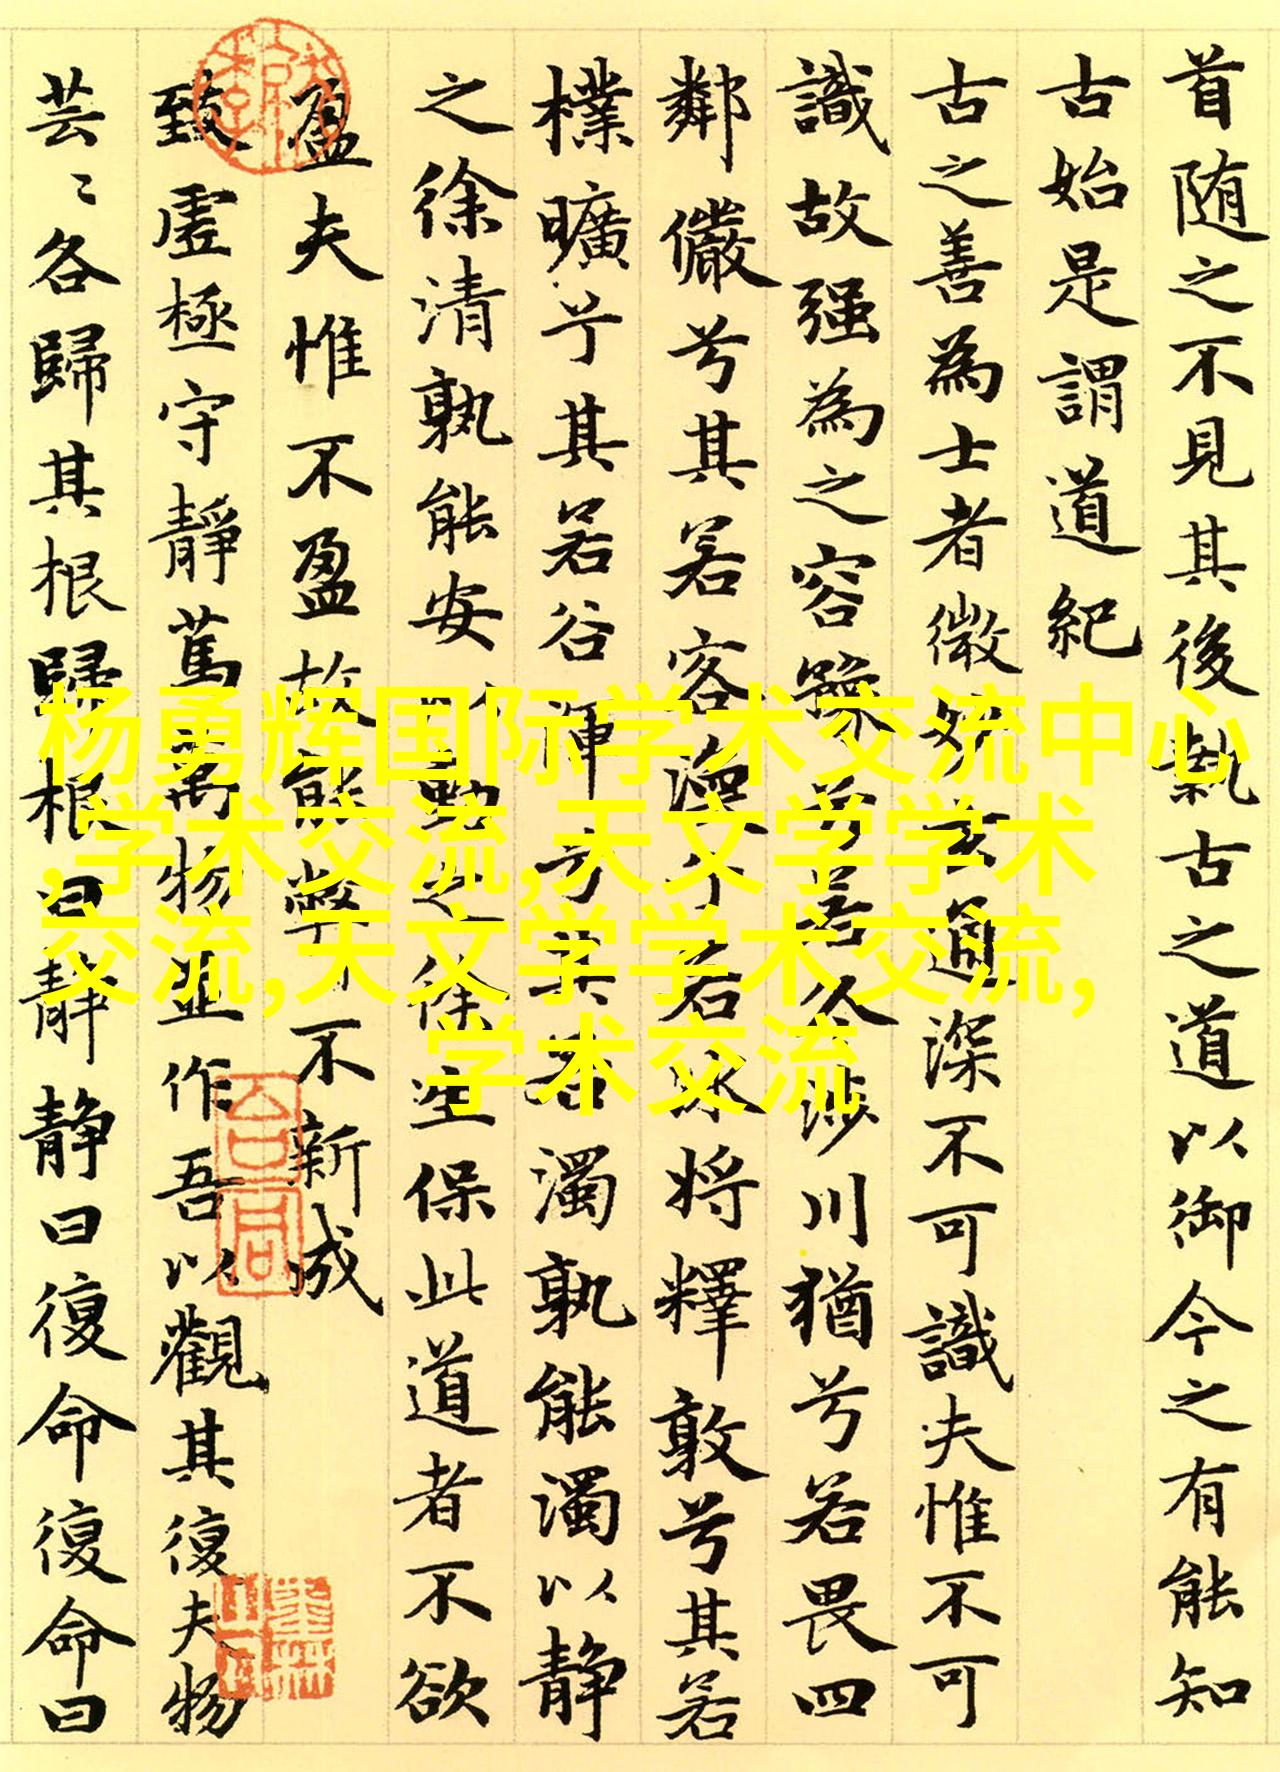 首随之不見其後執古之道以御今之有能知
古始是謂道紀
古之善為士者微妙玄通深不可識夫惟不可
識故强為之容豫兮若冬涉川猶兮若畏四
鄰儼兮其若客渙兮若冰將釋敦兮其若
樸曠兮其若谷渾兮其若濁孰能濁以静
之徐清孰能安以動之徐生保此道者不欲
盈夫惟不盈故能弊不新成
致虛極守靜篤萬物並作吾以觀其復夫物
芸〻各歸其根歸根曰靜静曰復命復命曰
杨勇辉国际学术交流中心
,学术交流,天文学学术
交流,天文学学术交流,
学术交流